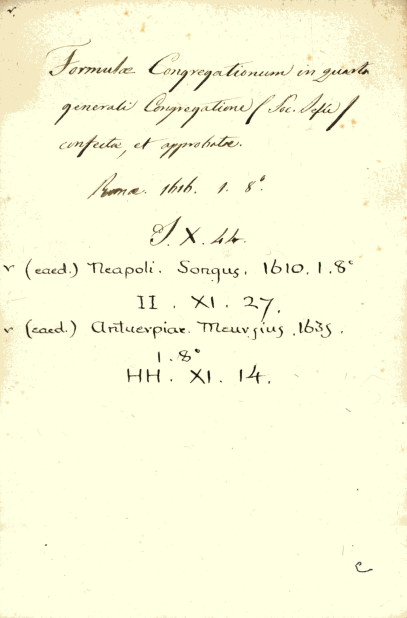 Formulæ Congregationum in quarta
generali Congregatione (Soc. Jesu)
confectæ, et approbatæ.
Romæ. 1616. 1. 8°.
J. X. 44.
v (eaed.) Neapoli. Songus. 1610. 1. 8°
II. XI. 27.
v (eaed.) Antuerpiae. Meursius. 1635.
1. 8°
HH. XI. 14.
c